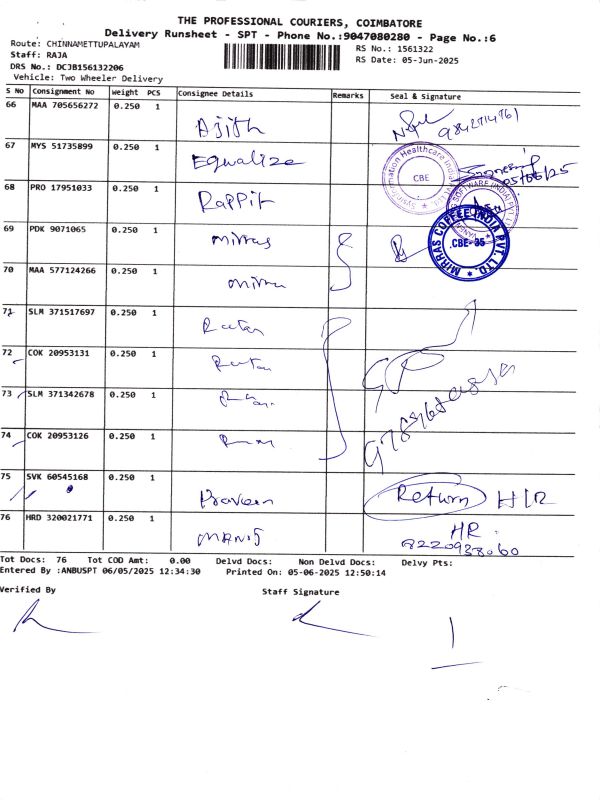 THE PROFESSIONAL COURIERS, COIMBATORE
Delivery Runsheet - SPT - Phone No.:9047080280 - Page No.:6
Route: CHINNAMETTUPALAYAM
RS No.: 1561322
Staff: RAJA
RS Date: 05-Jun-2025
DRS No.: DCJB156132206
Vehicle: Two Wheeler Delivery
S No Consignment No Weight PCS Consignee Details Remarks Seal & Signature
66 MAA 705656272 0.250 1 Ajith
67 MYS 51735899 0.250 1 Equalize
CBE
05/06/25
68 PRO 17951033 0.250 1 Rappit
69 PDK 9071065 0.250 1 Mirras
MIRRAS COFFEE INDIA PVT. LTD.
CBE-35
70 MAA 577124266 0.250 1
71 SLM 371517697 0.250 1
72 COK 20953131 0.250 1
73 SLM 371342678 0.250 1
74 COK 20953126 0.250 1
75 SVK 60545168 0.250 1 Praveen Return H/R
76 HRD 320021771 0.250 1 MANOJ HR
8220938060
Tot Docs: 76 Tot COD Amt: 0.00 Delvd Docs: Non Delvd Docs: Delvy Pts:
Entered By :ANBUSPT 06/05/2025 12:34:30 Printed On: 05-06-2025 12:50:14
Verified By
Staff Signature